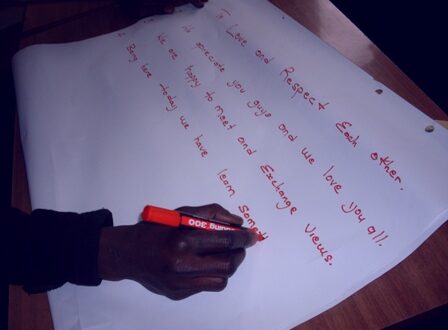 To Love and Respect Each other.
We apreciate you guys and we love you all.
We are happy to meet and Exchange views.
Being here today we have learn Somet
dding 300